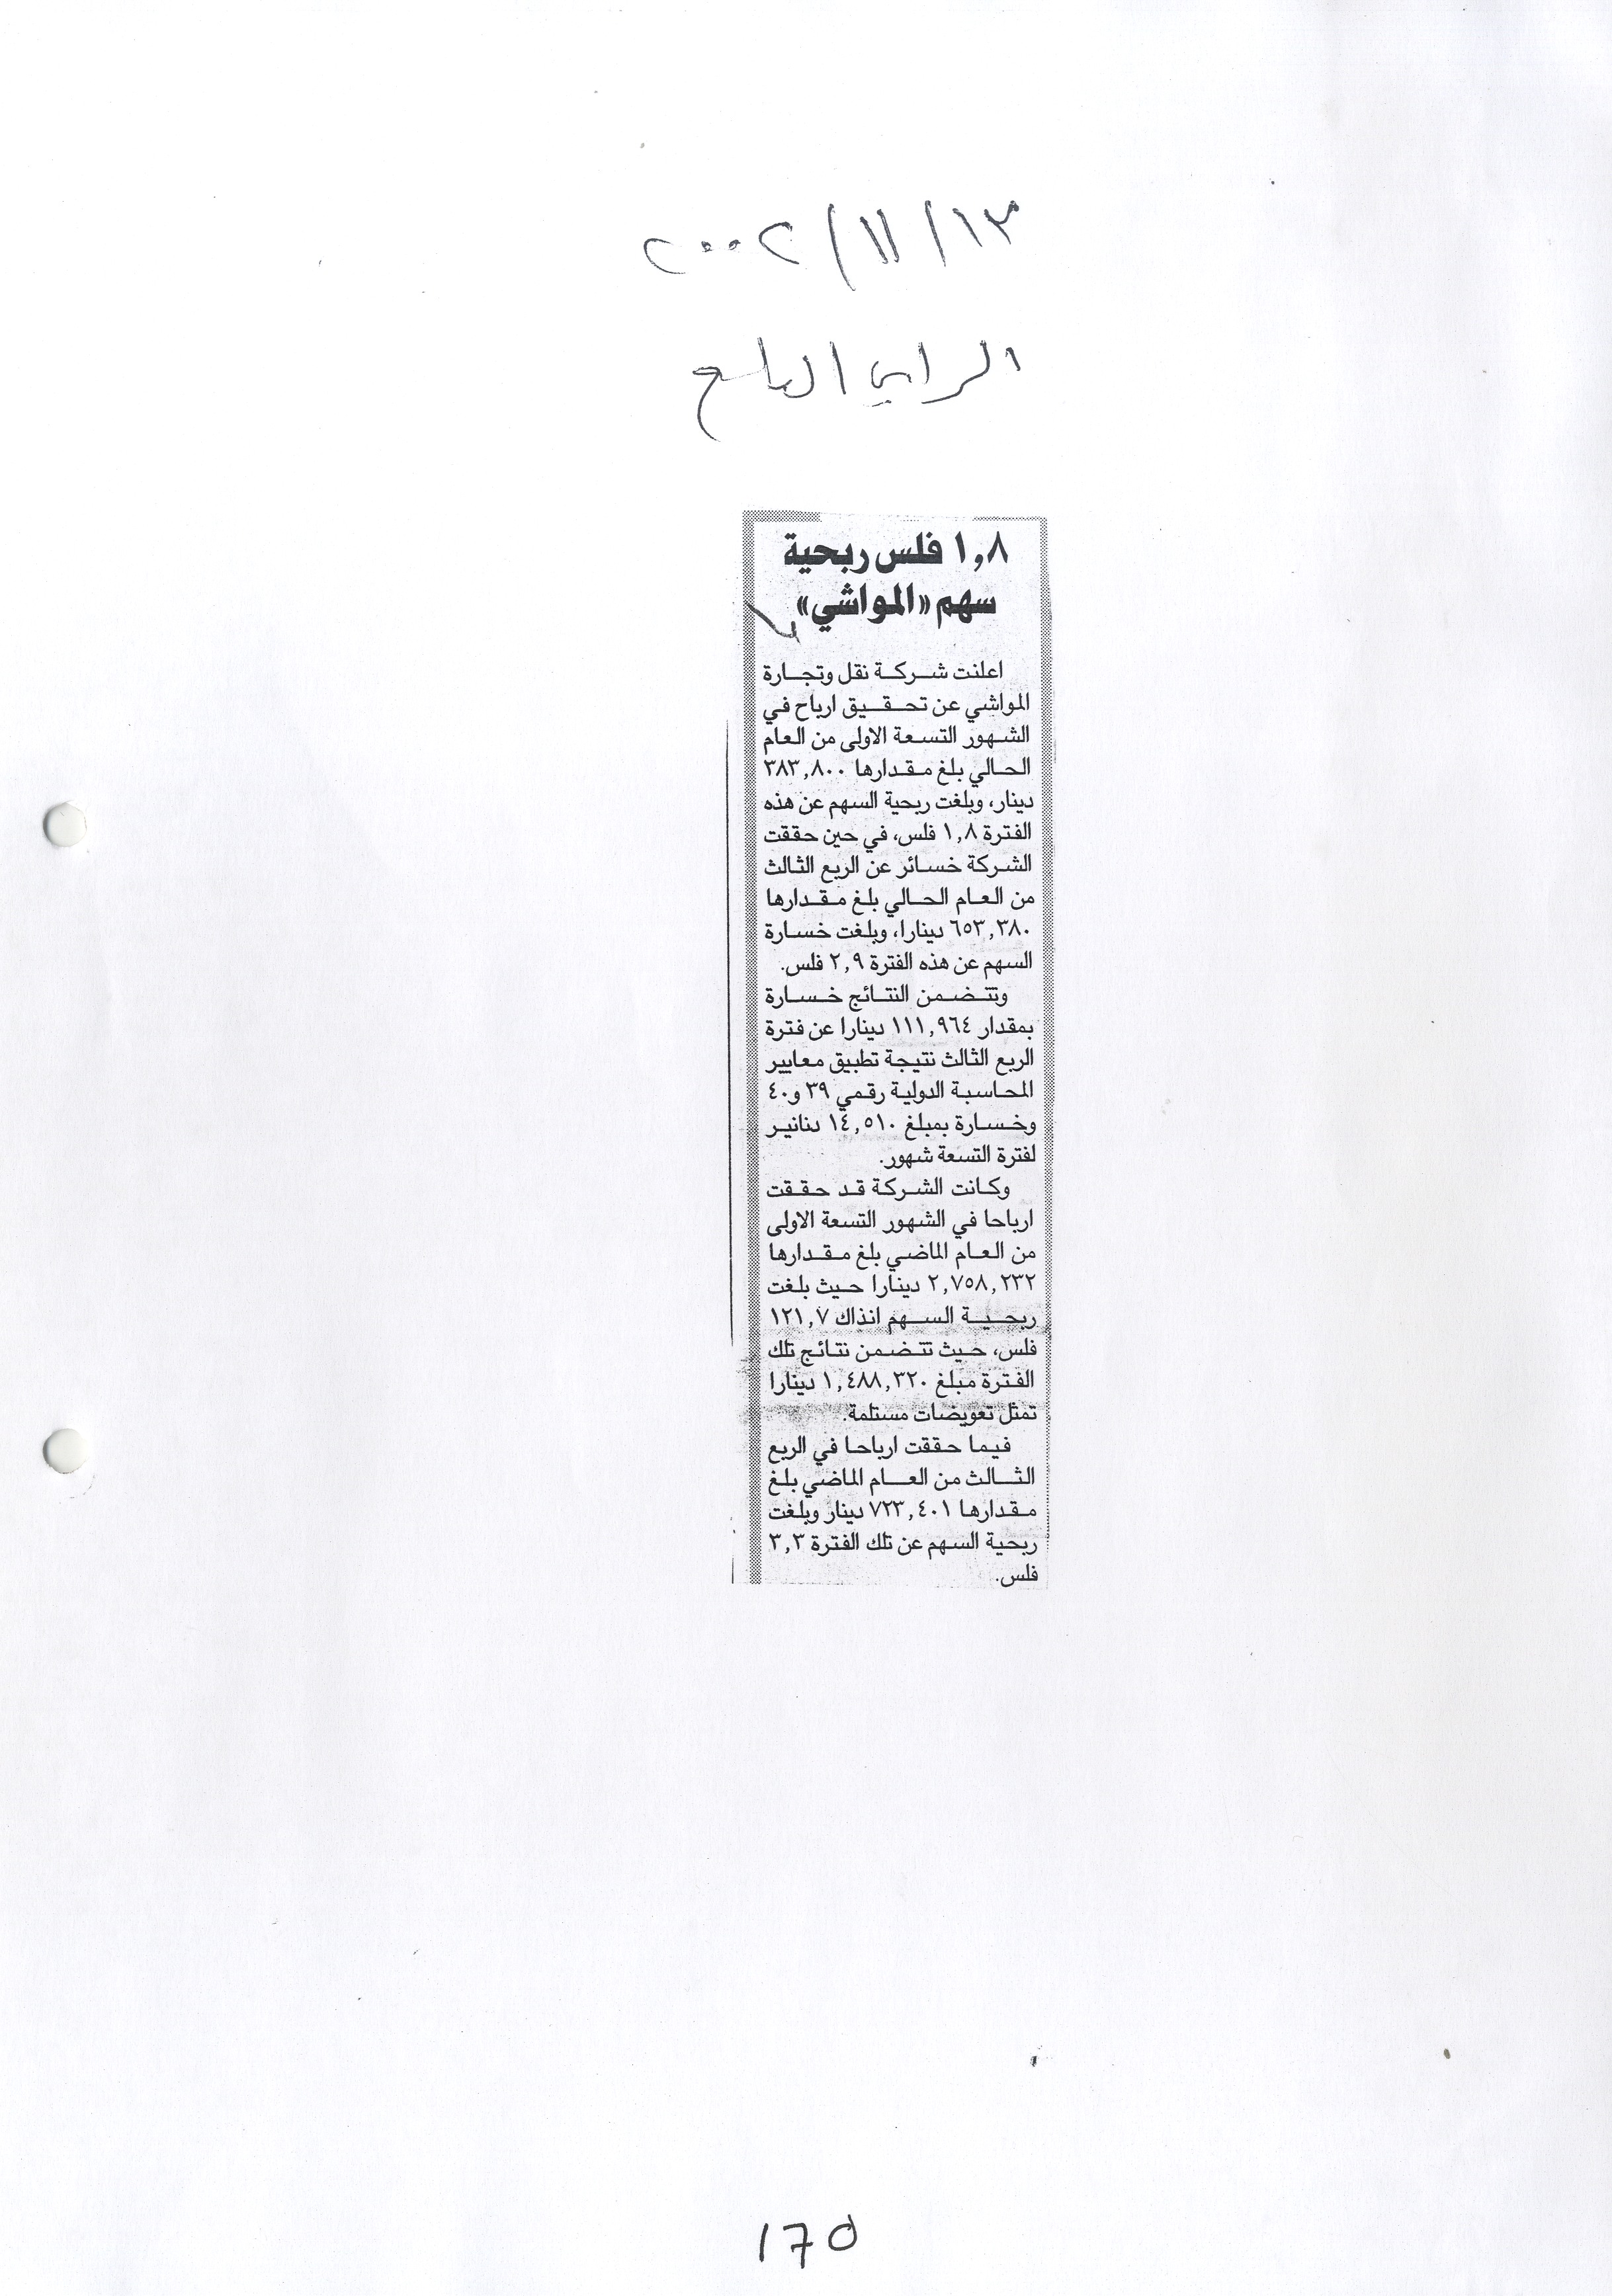 ١٣/١١/٢٠٠٢
الراي العام
١,٨ فلس ربحية
سهم «المواشي»
اعلنت شركة نقل وتجارة
المواشي عن تحقيق ارباح في
الشهور التسعة الاولى من العام
الحالي بلغ مقدارها ٣٨٣,٨٠٠
دينار، وبلغت ربحية السهم عن هذه
الفترة ١,٨ فلس، في حين حققت
الشركة خسائر عن الربع الثالث
من العام الحالي بلغ مقدارها
٦٥٣,٣٨٠ دينارا، وبلغت خسارة
السهم عن هذه الفترة ٢,٩ فلس.
وتتضمن النتائج خسارة
بمقدار ١١١,٩٦٤ دينارا عن فترة
الربع الثالث نتيجة تطبيق معايير
المحاسبة الدولية رقمي ٣٩ و٤٠
وخسارة بمبلغ ١٤,٥١٠ دنانير
لفترة التسعة شهور.
وكانت الشركة قد حققت
ارباحا في الشهور التسعة الاولى
من العام الماضي بلغ مقدارها
٢,٧٥٨,٢٣٢ دينارا حيث بلغت
ربحية السهم انذاك ١٢١,٧
فلس، حيث تتضمن نتائج تلك
الفترة مبلغ ١,٤٨٨,٣٢٠ دينارا
تمثل تعويضات مستلمة.
فيما حققت ارباحا في الربع
الثالث من العام الماضي بلغ
مقدارها ٧٢٣,٤٠١ دينار وبلغت
ربحية السهم عن تلك الفترة ٣,٣
فلس.
١٦٥